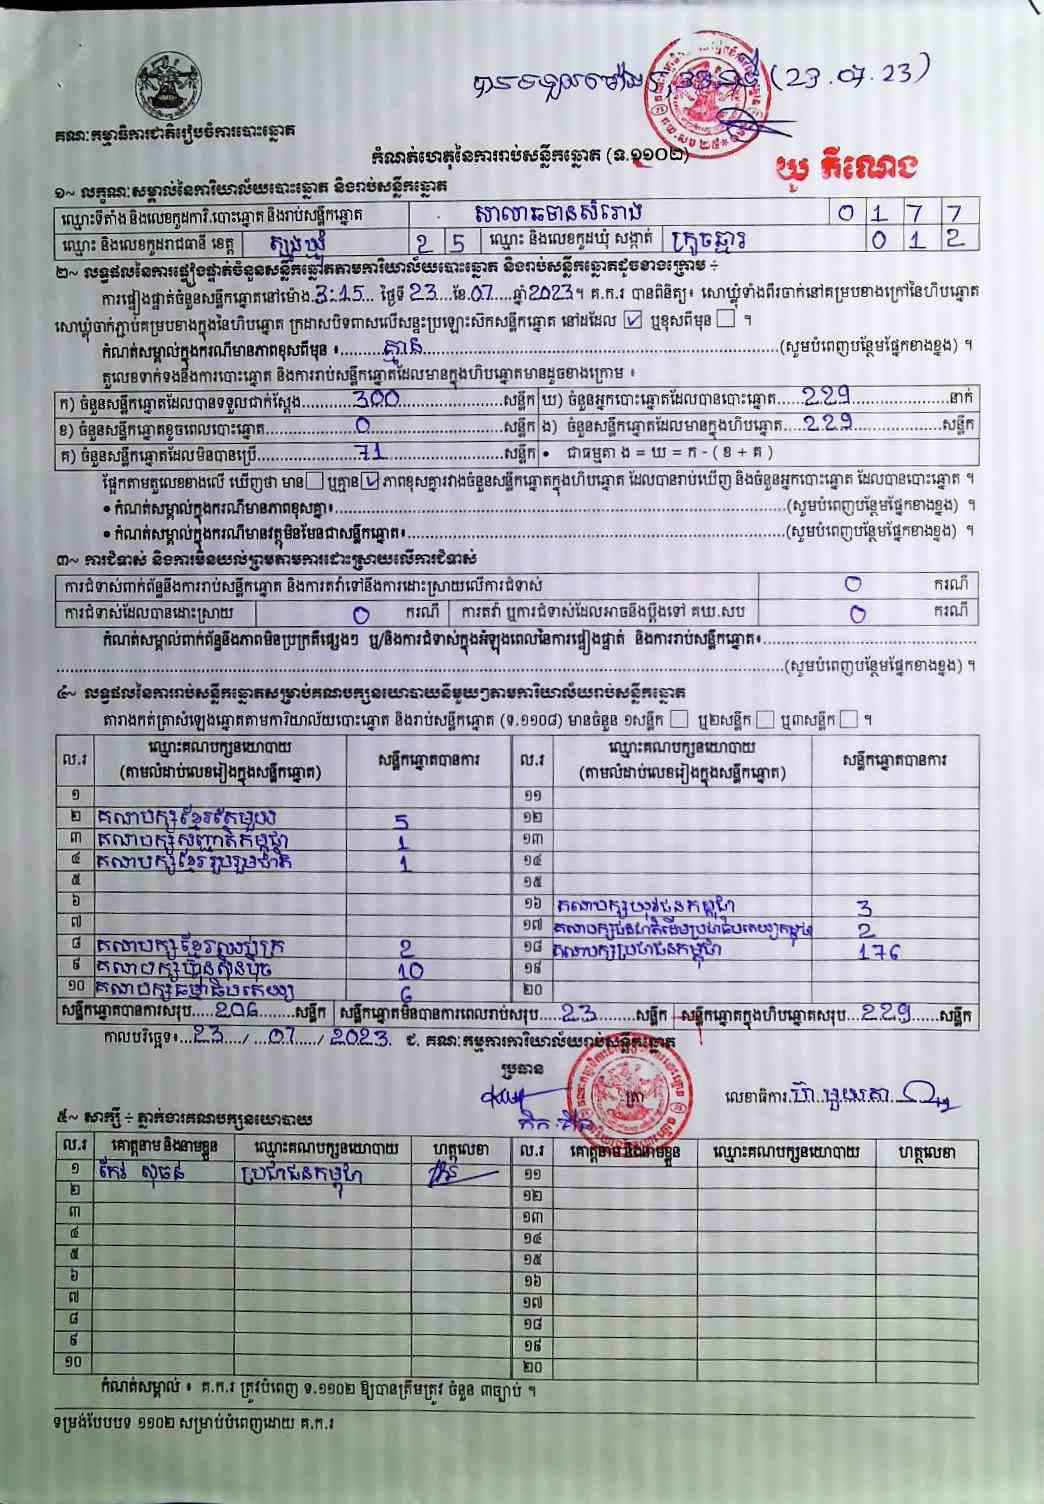 បានទទួលម៉ោង (23.07.23)
គណៈកម្មាធិការជាតិរៀបចំការបោះឆ្នោត
កំណត់ហេតុនៃការរាប់សន្លឹកឆ្នោត (ទ.១១០២)
យូ គីណេង
១~ លក្ខណៈសម្គាល់នៃការិយាល័យបោះឆ្នោត និងរាប់សន្លឹកឆ្នោត
ឈ្មោះទីតាំង និងលេខកូដការិ.បោះឆ្នោត និងរាប់សន្លឹកឆ្នោត សាលាឆមានសំរោង 0 1 7 7
ឈ្មោះ និងលេខកូដរាជធានី ខេត្ត ត្បូងឃ្មុំ 2 5 ឈ្មោះ និងលេខកូដឃុំ សង្កាត់ ក្រូចឆ្មារ 0 1 2
២~ លទ្ធផលនៃការផ្ទៀងផ្ទាត់ចំនួនសន្លឹកឆ្នោតតាមការិយាល័យបោះឆ្នោត និងរាប់សន្លឹកឆ្នោតដូចខាងក្រោម ÷
ការផ្ទៀងផ្ទាត់ចំនួនសន្លឹកឆ្នោតនៅម៉ោង 3:15 ថ្ងៃទី 23 ខែ 07 ឆ្នាំ 2023 ។ គ.ក.រ បានពិនិត្យ៖ សោឃ្លុំទាំងពីរចាក់នៅគម្របខាងក្រៅនៃហិបឆ្នោត
សោឃ្លុំចាក់ភ្ជាប់គម្របខាងក្នុងនៃហិបឆ្នោត ក្រដាសបិទពាសលើសន្ទះប្រឡោះស៊កសន្លឹកឆ្នោត នៅដដែល ☑ ឬខុសពីមុន ☐ ។
កំណត់សម្គាល់ក្នុងករណីមានភាពខុសពីមុន ៖ គ្មាន (សូមបំពេញបន្ថែមផ្នែកខាងខ្នង) ។
តួលេខទាក់ទងនឹងការបោះឆ្នោត និងការរាប់សន្លឹកឆ្នោតដែលមានក្នុងហិបឆ្នោតមានដូចខាងក្រោម ៖
ក) ចំនួនសន្លឹកឆ្នោតដែលបានទទួលជាក់ស្តែង 300 សន្លឹក ឃ) ចំនួនអ្នកបោះឆ្នោតដែលបានបោះឆ្នោត 229 នាក់
ខ) ចំនួនសន្លឹកឆ្នោតខូចពេលបោះឆ្នោត 0 សន្លឹក ង) ចំនួនសន្លឹកឆ្នោតដែលមានក្នុងហិបឆ្នោត 229 សន្លឹក
គ) ចំនួនសន្លឹកឆ្នោតដែលមិនបានប្រើ 71 សន្លឹក • ជាធម្មតា ង = ឃ = ក - ( ខ + គ )
ផ្អែកតាមតួលេខខាងលើ ឃើញថា មាន ☐ ឬគ្មាន ☑ ភាពខុសគ្នារវាងចំនួនសន្លឹកឆ្នោតក្នុងហិបឆ្នោត ដែលបានរាប់ឃើញ និងចំនួនអ្នកបោះឆ្នោត ដែលបានបោះឆ្នោត ។
• កំណត់សម្គាល់ក្នុងករណីមានភាពខុសគ្នា៖ (សូមបំពេញបន្ថែមផ្នែកខាងខ្នង) ។
• កំណត់សម្គាល់ក្នុងករណីមានវត្ថុមិនមែនជាសន្លឹកឆ្នោត៖ (សូមបំពេញបន្ថែមផ្នែកខាងខ្នង) ។
៣~ ការជំទាស់ និងការមិនយល់ព្រមតាមការដោះស្រាយលើការជំទាស់
ការជំទាស់ពាក់ព័ន្ធនឹងការរាប់សន្លឹកឆ្នោត និងការតវ៉ាទៅនឹងការដោះស្រាយលើការជំទាស់ 0 ករណី
ការជំទាស់ដែលបានដោះស្រាយ 0 ករណី ការតវ៉ា ឬការជំទាស់ដែលអាចនឹងប្តឹងទៅ គឃ.សប 0 ករណី
កំណត់សម្គាល់ពាក់ព័ន្ធនឹងភាពមិនប្រក្រតីផ្សេងៗ ឬ/និងការជំទាស់ក្នុងអំឡុងពេលនៃការផ្ទៀងផ្ទាត់ និងការរាប់សន្លឹកឆ្នោត៖
(សូមបំពេញបន្ថែមផ្នែកខាងខ្នង) ។
៤~ លទ្ធផលនៃការរាប់សន្លឹកឆ្នោតសម្រាប់គណបក្សនយោបាយនីមួយៗតាមការិយាល័យរាប់សន្លឹកឆ្នោត
តារាងកត់ត្រាសំឡេងឆ្នោតតាមការិយាល័យបោះឆ្នោត និងរាប់សន្លឹកឆ្នោត (ទ.១១០៨) មានចំនួន ១សន្លឹក ☐ ឬ២សន្លឹក ☐ ឬ៣សន្លឹក ☐ ។
ល.រ ឈ្មោះគណបក្សនយោបាយ (តាមលំដាប់លេខរៀងក្នុងសន្លឹកឆ្នោត) សន្លឹកឆ្នោតបានការ ល.រ ឈ្មោះគណបក្សនយោបាយ (តាមលំដាប់លេខរៀងក្នុងសន្លឹកឆ្នោត) សន្លឹកឆ្នោតបានការ
១ ១១
២ គណបក្សខ្មែរតែមួយ 5 ១២
៣ គណបក្សសញ្ជាតិកម្ពុជា 1 ១៣
៤ គណបក្សខ្មែររួបរួមជាតិ 1 ១៤
៥ ១៥
៦ ១៦ គណបក្សយុវជនកម្ពុជា 3
៧ ១៧ គណបក្សជនជាតិដើមប្រជាធិបតេយ្យកម្ពុជា 2
៨ គណបក្សខ្មែរឈប់ក្រ 2 ១៨ គណបក្សប្រជាជនកម្ពុជា 176
៩ គណបក្សហ៊្វុនស៊ិនប៉ិច 10 ១៩
១០ គណបក្សធម្មាធិបតេយ្យ 6 ២០
សន្លឹកឆ្នោតបានការសរុប 206 សន្លឹក សន្លឹកឆ្នោតមិនបានការពេលរាប់សរុប 23 សន្លឹក សន្លឹកឆ្នោតក្នុងហិបឆ្នោតសរុប 229 សន្លឹក
កាលបរិច្ឆេទ៖ 23 / 07 / 2023 ជ. គណៈកម្មការការិយាល័យរាប់សន្លឹកឆ្នោត
ប្រធាន
ត្រា លេខាធិការ
៥~ សាក្សី ÷ ភ្នាក់ងារគណបក្សនយោបាយ
ល.រ គោត្តនាម និងនាមខ្លួន ឈ្មោះគណបក្សនយោបាយ ហត្ថលេខា ល.រ គោត្តនាម និងនាមខ្លួន ឈ្មោះគណបក្សនយោបាយ ហត្ថលេខា
១ កែវ សុផន់ ប្រជាជនកម្ពុជា ១១
២ ១២
៣ ១៣
៤ ១៤
៥ ១៥
៦ ១៦
៧ ១៧
៨ ១៨
៩ ១៩
១០ ២០
កំណត់សម្គាល់ ៖ គ.ក.រ ត្រូវបំពេញ ទ.១១០២ ឱ្យបានត្រឹមត្រូវ ចំនួន ៣ច្បាប់ ។
ទម្រង់បែបបទ ១១០២ សម្រាប់បំពេញដោយ គ.ក.រ